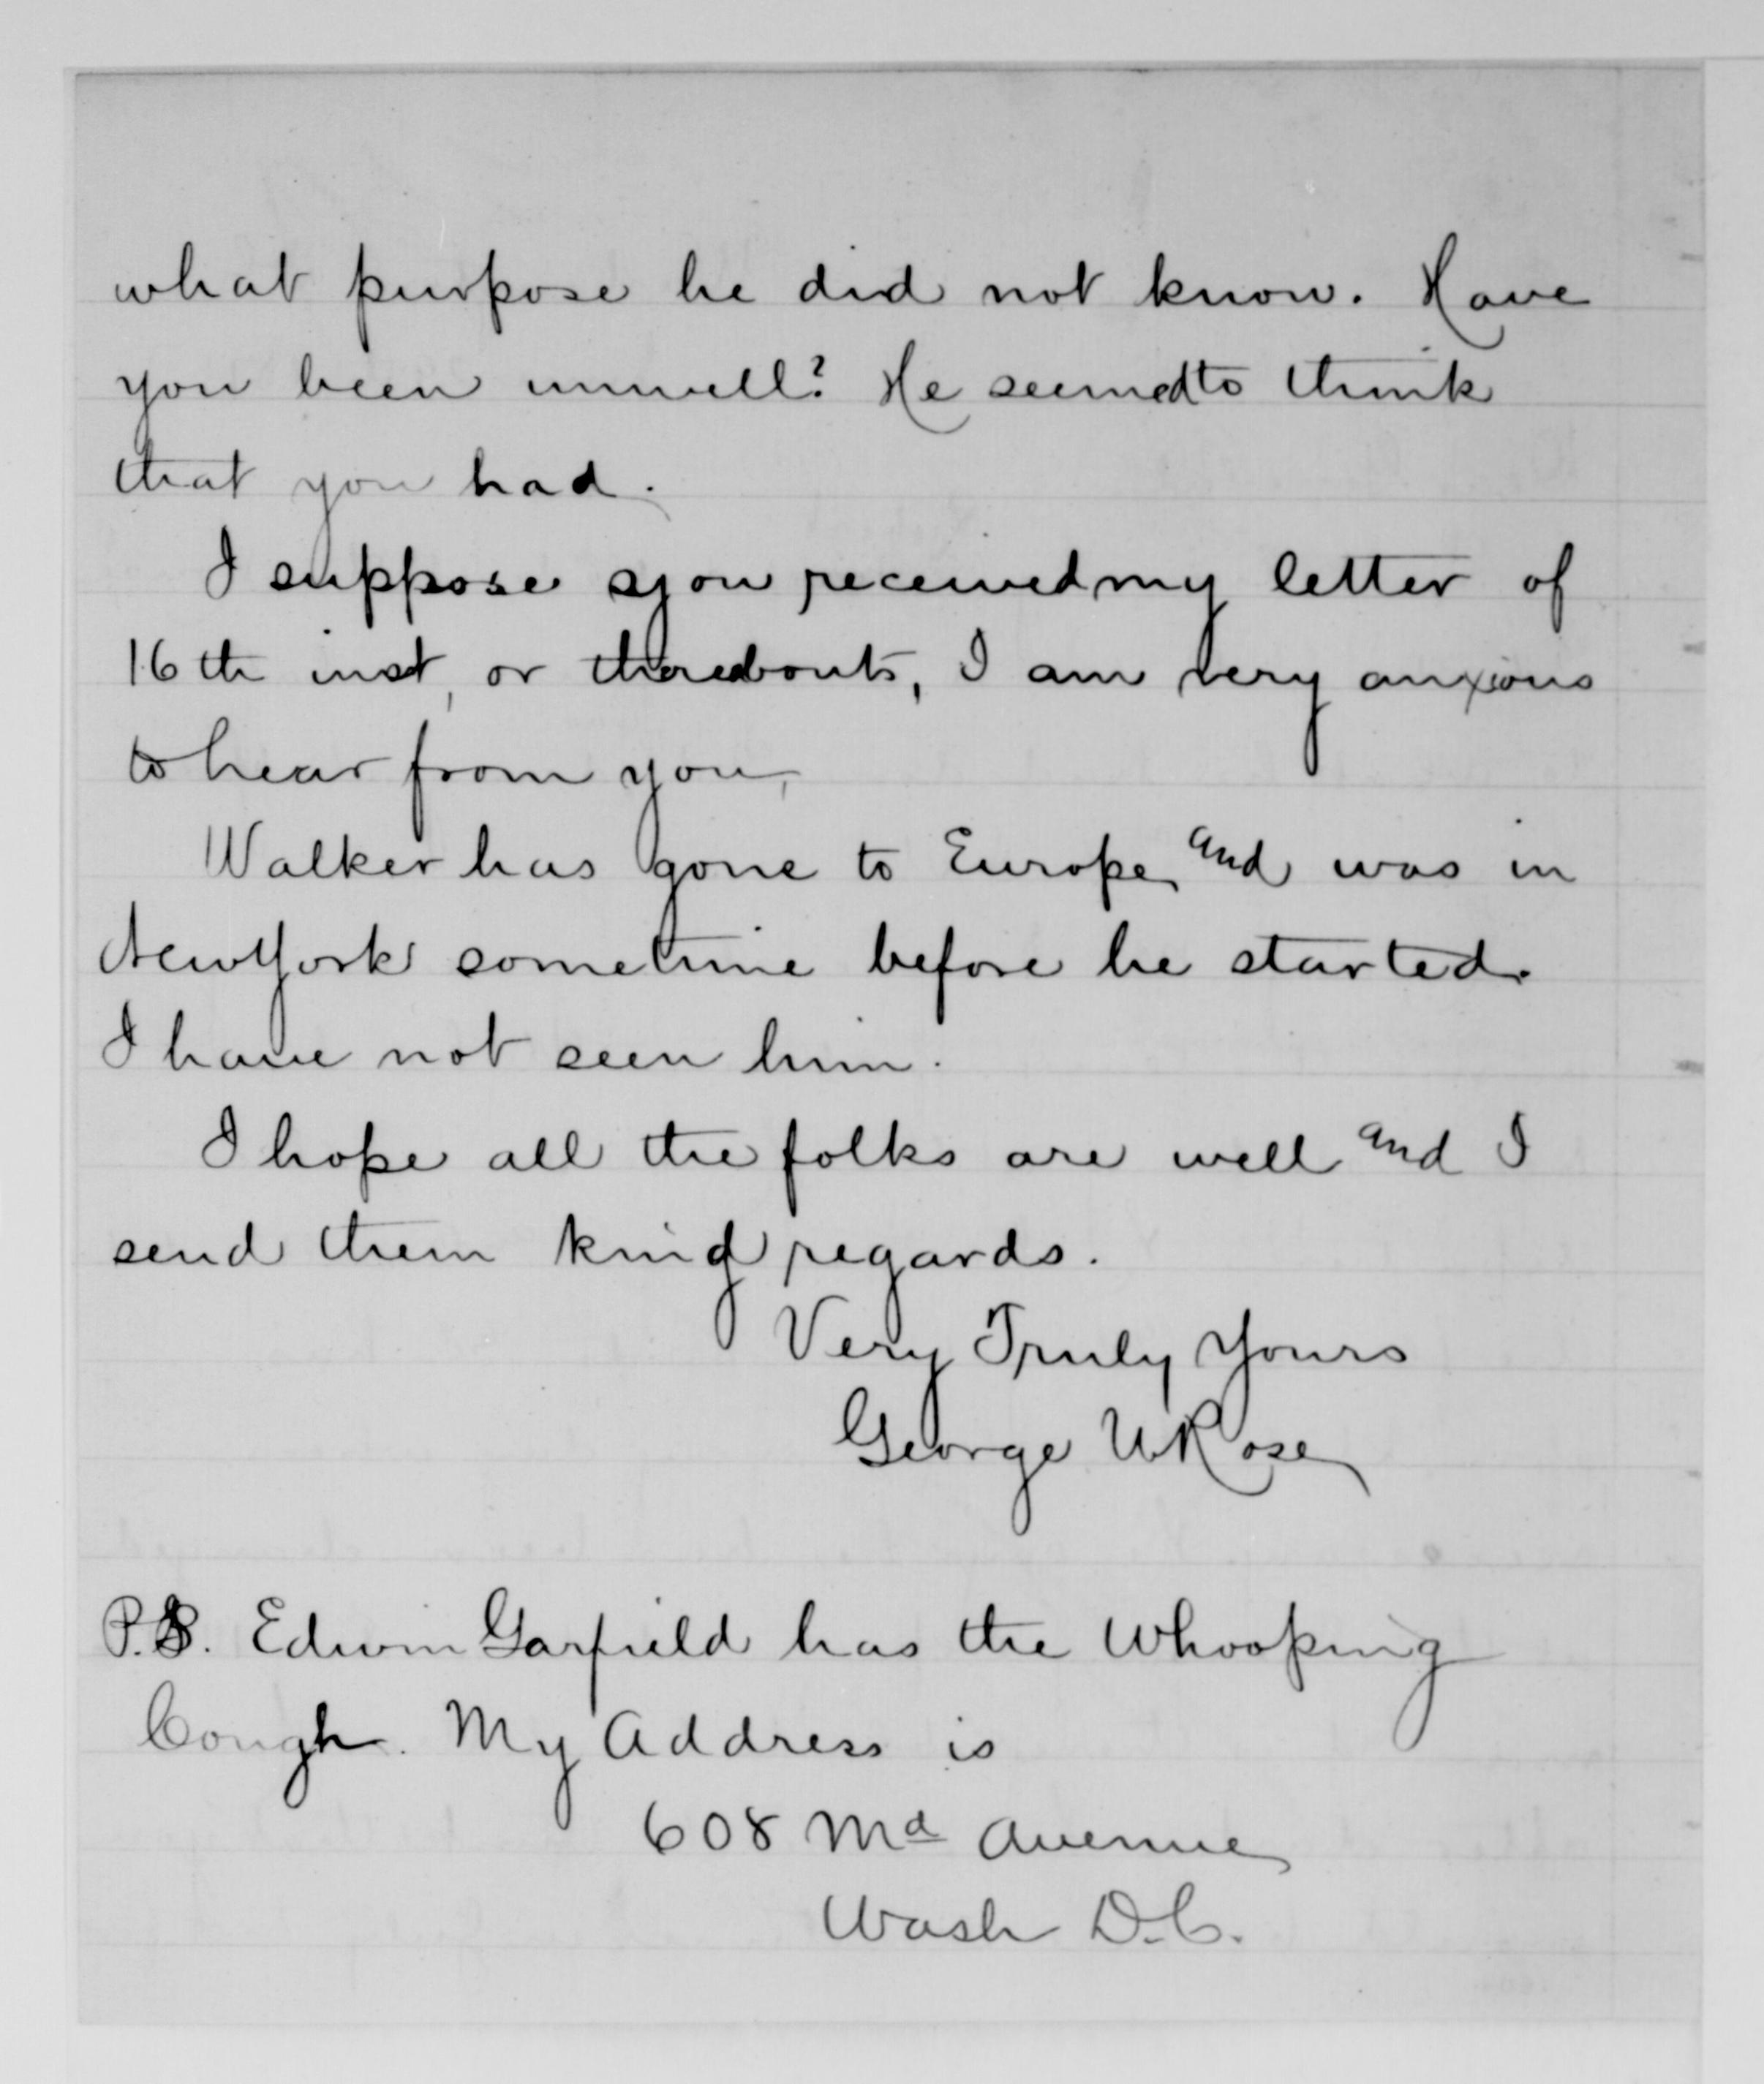 what purpose he did not know. Have
you been unwell? He seemed to think
that you had.
I suppose you received my letter of
16th inst, or thereabouts, I am very anxious
to hear from you,
Walker has gone to Europe and was in
New York sometime before he started.
I have not seen him.
I hope all the folks are well and I
send them kind regards.
Very Truly Yours
George U Rose
P.S. Edwin Garfield has the Whooping
Cough. My Address is
608 Md Avenue
Wash D.C.